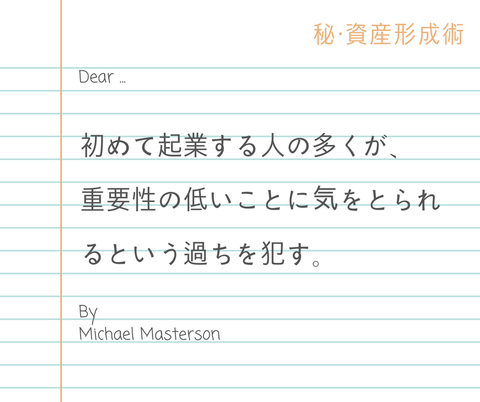 秘·資産形成術
Dear ...
初めて起業する人の多くが、
重要性の低いことに気をとられ
るという過ちを犯す。
By
Michael Masterson